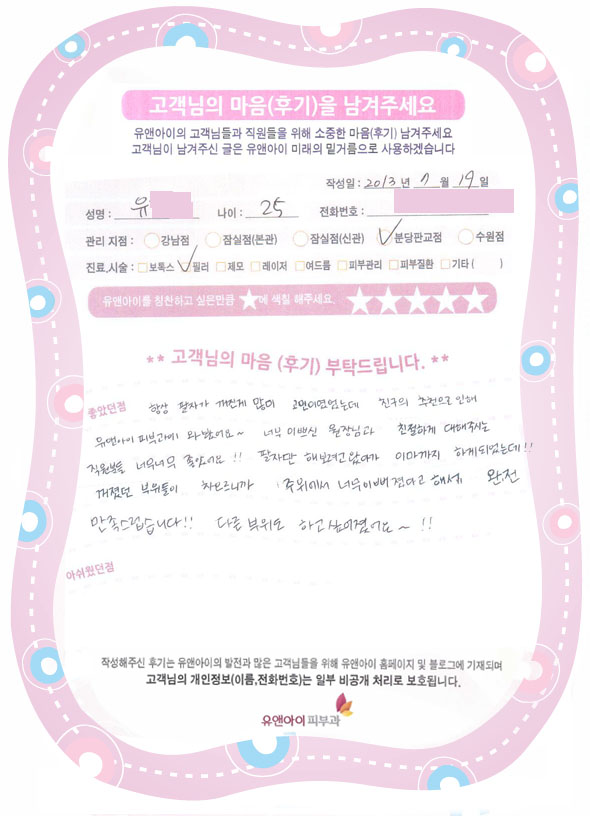 고객님의 마음(후기)을 남겨주세요
유앤아이의 고객님들과 직원들을 위해 소중한 마음(후기) 남겨주세요
고객님이 남겨주신 글은 유앤아이 미래의 밑거름으로 사용하겠습니다
작성일 : 2013 년 7 월 19 일
성명 : 유 나이 : 25 전화번호 :
관리 지점 : 강남점 잠실점(본관) 잠실점(신관) 분당판교점 수원점
진료,시술 : 보톡스 필러 제모 레이저 여드름 피부관리 피부질환 기타 ( )
유앤아이를 칭찬하고 싶은만큼 ★에 색칠 해주세요 ★★★★★
** 고객님의 마음 (후기) 부탁드립니다. **
좋았던점 항상 팔자가 꺼진게 많이 고민이였었는데 친구의 추천으로 인해
유앤아이 피부과에 와봤어요~ 너무 이쁘신 원장님과 친절하게 대해주시는
직원분들 너무너무 좋았어요!! 팔자만 해보려고 왔다가 이마까지 하게되었는데!!
꺼졌던 부위들이 차오르니까 주위에서 너무 이뻐졌다고 해서 완전
만족스럽습니다!! 다른 부위도 하고싶어졌어요~!!
아쉬웠던점
작성해주신 후기는 유앤아이의 발전과 많은 고객님들을 위해 유앤아이 홈페이지 및 블로그에 기재되며
고객님의 개인정보(이름,전화번호)는 일부 비공개 처리로 보호됩니다.
유앤아이피부과